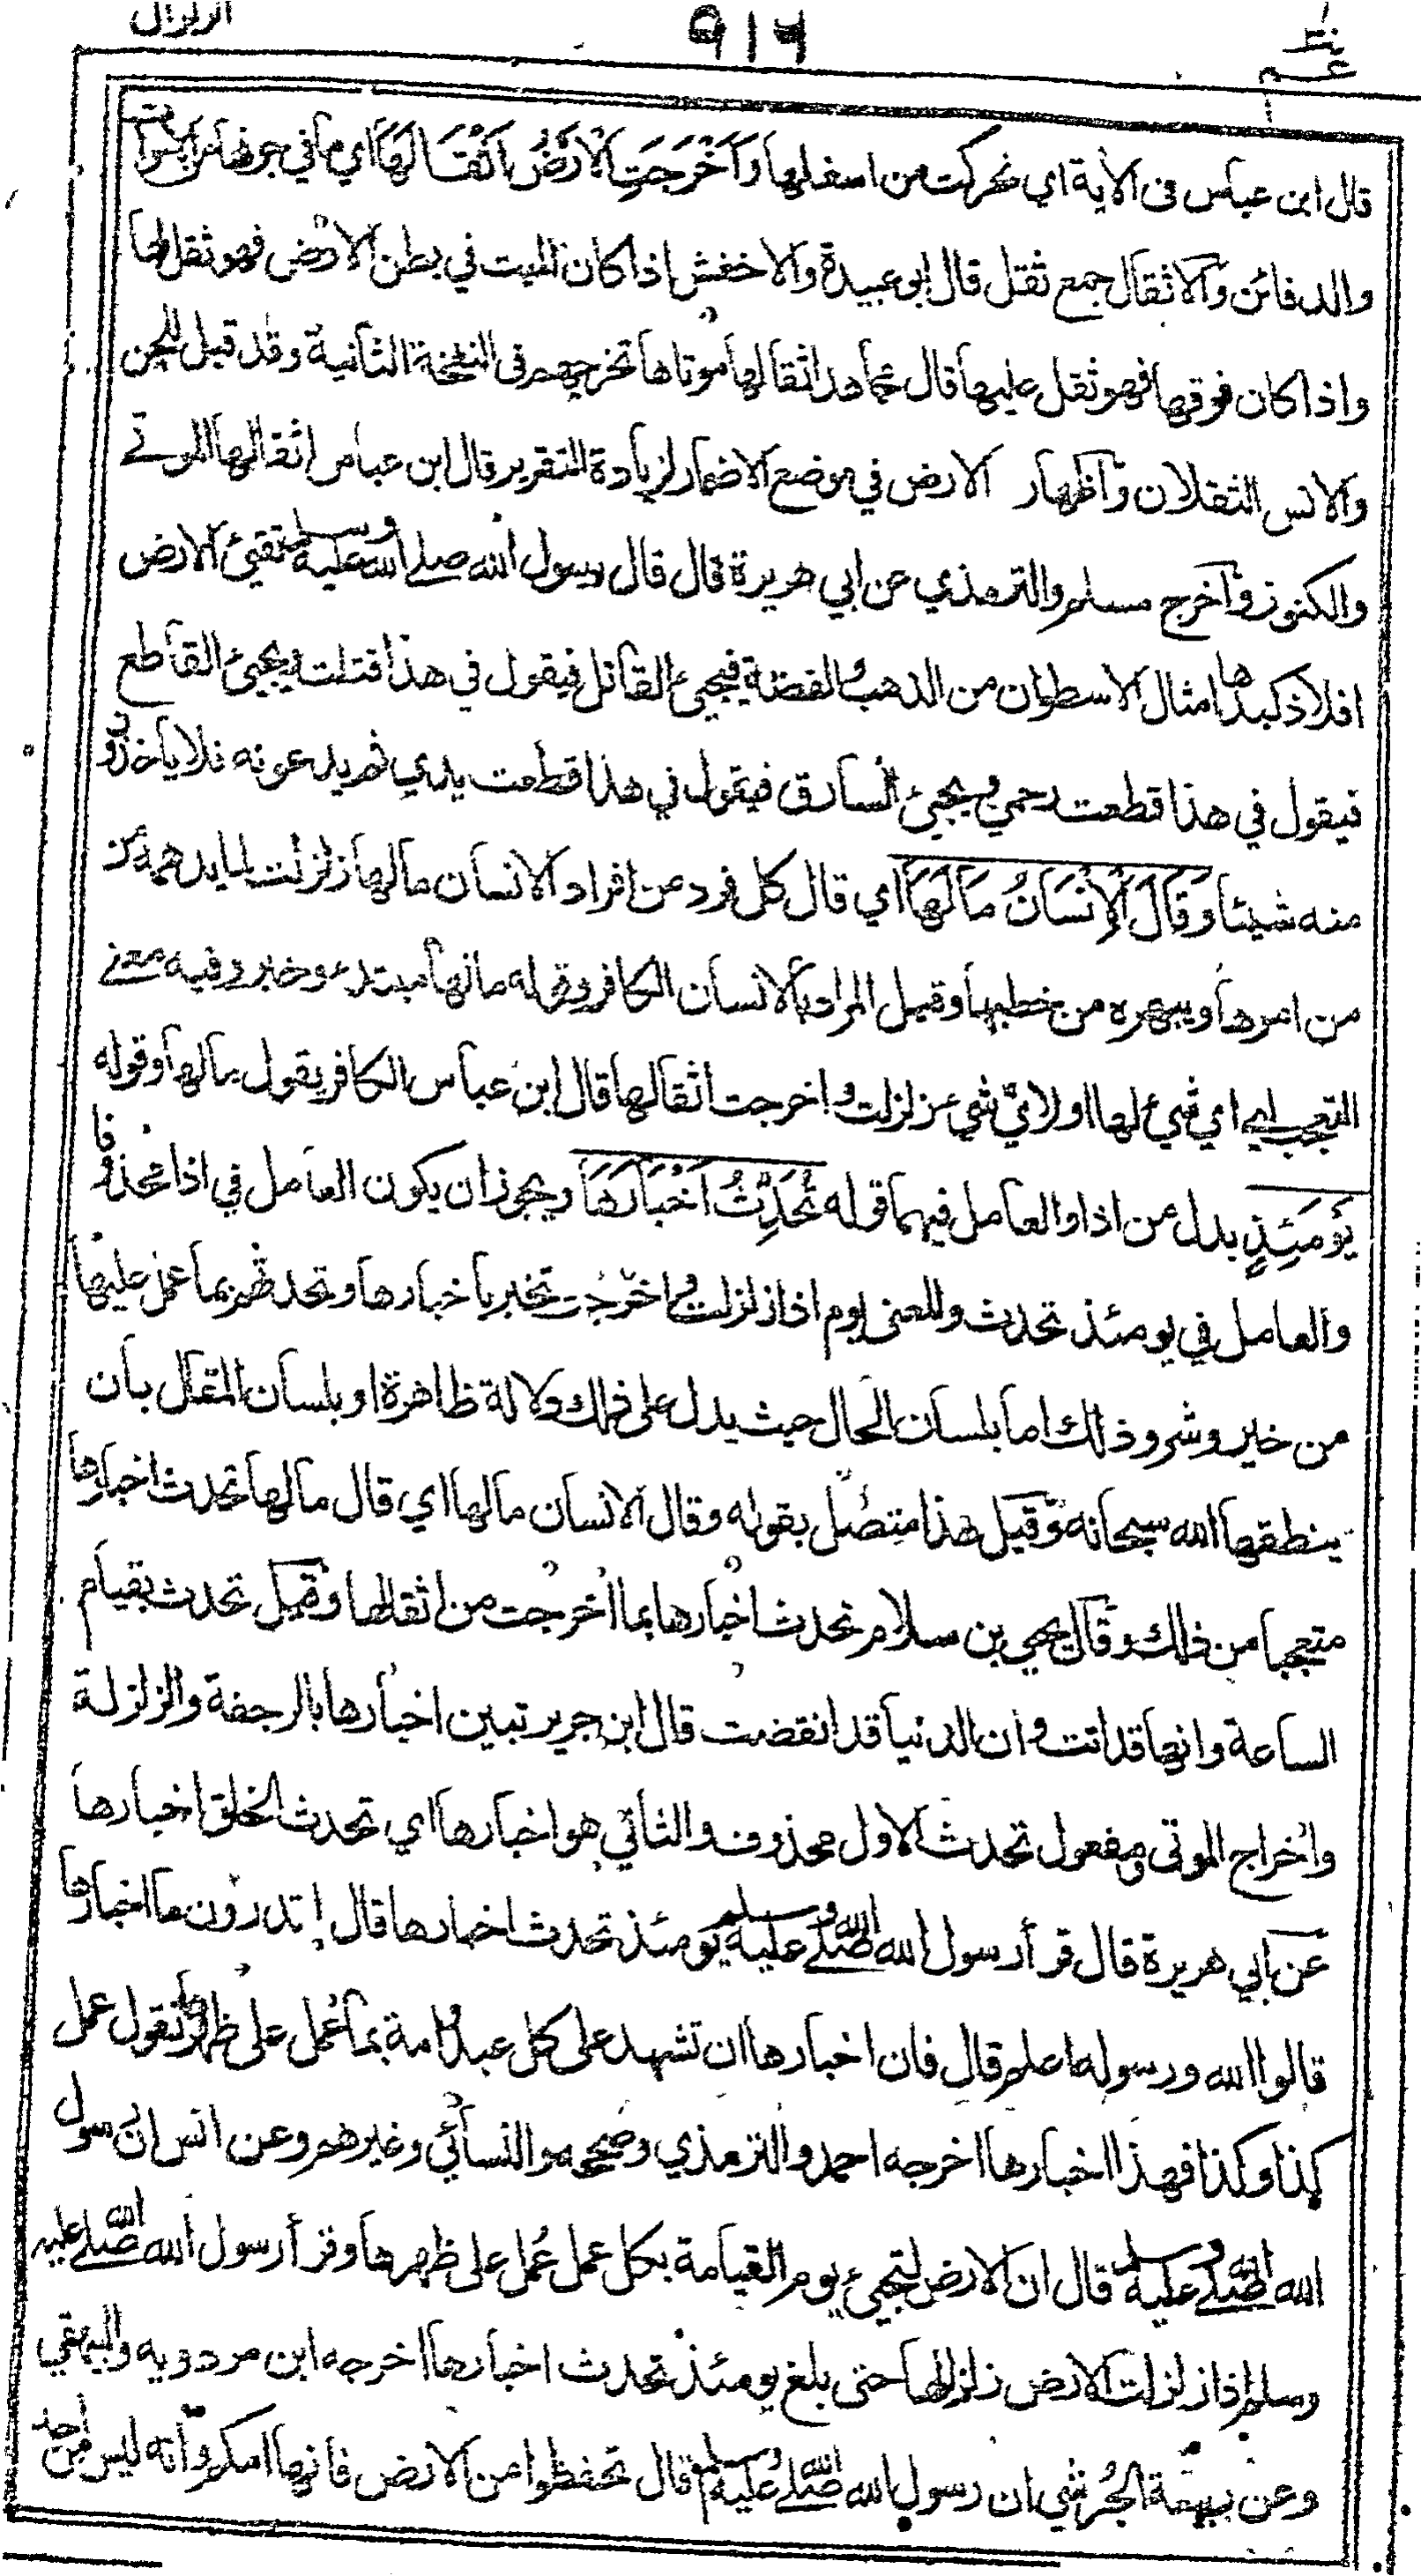 الزلزال
٩١٦
عم
قال ابن عباس فى الأية اي تحركت من اسفلها وَاَخْرَجَتِ الْاَرْضُ اَثْقَالَهَا اي ما في جوفها من الاموات
والدفائن والاثقال جمع ثقل قال ابو عبيدة والاخفش اذا كان الميت في بطن الارض فهو ثقل لها
واذا كان فوقها فهو ثقل عليها قال مجاهد اثقالها موتاها تخرجهم فى النفخة الثانية وقد قيل للجن
والانس الثقلان واظهار الارض في موضع الاضمار لزيادة التقرير قال ابن عباس اثقالها الموتے
والكنوز واخرج مسلم والترمذي عن ابي هريرة قال قال رسول الله صلے الله عليه وسلم تقيئ الارض
افلاذ كبدها امثال الاسطوان من الذهب والفضة فيجيئ القاتل فيقول في هذا قتلت ويجيئ القاطع
فيقول في هذا قطعت رحمي ويجيئ السارق فيقول في هذا قطعت يدي ثم يدعونه فلا ياخذون
منه شيئا وَقَالَ الْاِنْسَانُ مَا لَهَا اي قال كل فرد من افراد الانسان ما لها زلزلت لما يدهمه من
من امرها ويبهره من خطبها وقيل المراد بالانسان الكافر وقوله ما لها مبتدء وخبر وفيه معنے
التعجب اے اي شيء لها او لايّ شي زلزلت واخرجت اثقالها قال ابن عباس الكافر يقول ما لها وقوله
يَوْمَئِذٍ بدل من اذا والعامل فيهما قوله تُحَدِّثُ اَخْبَارَهَا ويجوز ان يكون العامل في اذا محذوفا
والعامل في يومئذ تحدث والمعنى يوم اذا زلزلت واخرجت تخبر باخبارها وتحدثهم بما عمل عليها
من خير وشر وذلك اما بلسان الحال حيث يدل على ذلك دلالة ظاهرة او بلسان المقال بان
ينطقها الله سبحانه وقيل هذا متصل بقوله وقال الانسان ما لها اي قال ما لها تحدث اخبارها
متعجبا من ذلك وقال يحيى بن سلام تحدث اخبارها بما اخرجت من اثقالها وقيل تحدث بقيام
الساعة وانها قد اتت وان الدنيا قد انقضت قال ابن جرير تبين اخبارها بالرجفة والزلزلة
واخراج الموتى ومفعول تحدث الاول محذوف والثاني هو اخبارها اي تحدث الخلق اخبارها
عن ابي هريرة قال قرأ رسول الله صلے الله عليه وسلم يومئذ تحدث اخبارها قال اتدرون ما اخبارها
قالوا الله ورسوله اعلم قال فان اخبارها ان تشهد على كل عبد وامة بما عُمل على ظهرها تقول عمل
كذا وكذا فهذا اخبارها اخرجه احمد والترمذي وصححه والنسائي وغيرهم وعن انس ان رسول
الله صلے الله عليه وسلم قال ان الارض لتجيء يوم القيامة بكل عمل عُمل على ظهرها وقرأ رسول الله صلے الله عليه
وسلم اذا زلزلت الارض زلزالها حتى بلغ يومئذ تحدث اخبارها اخرجه ابن مردويه والبيهقي
وعن الجُرشي ان رسول الله صلے الله عليه وسلم قال تحفظوا من الارض فانها امكم وانه ليس من احد